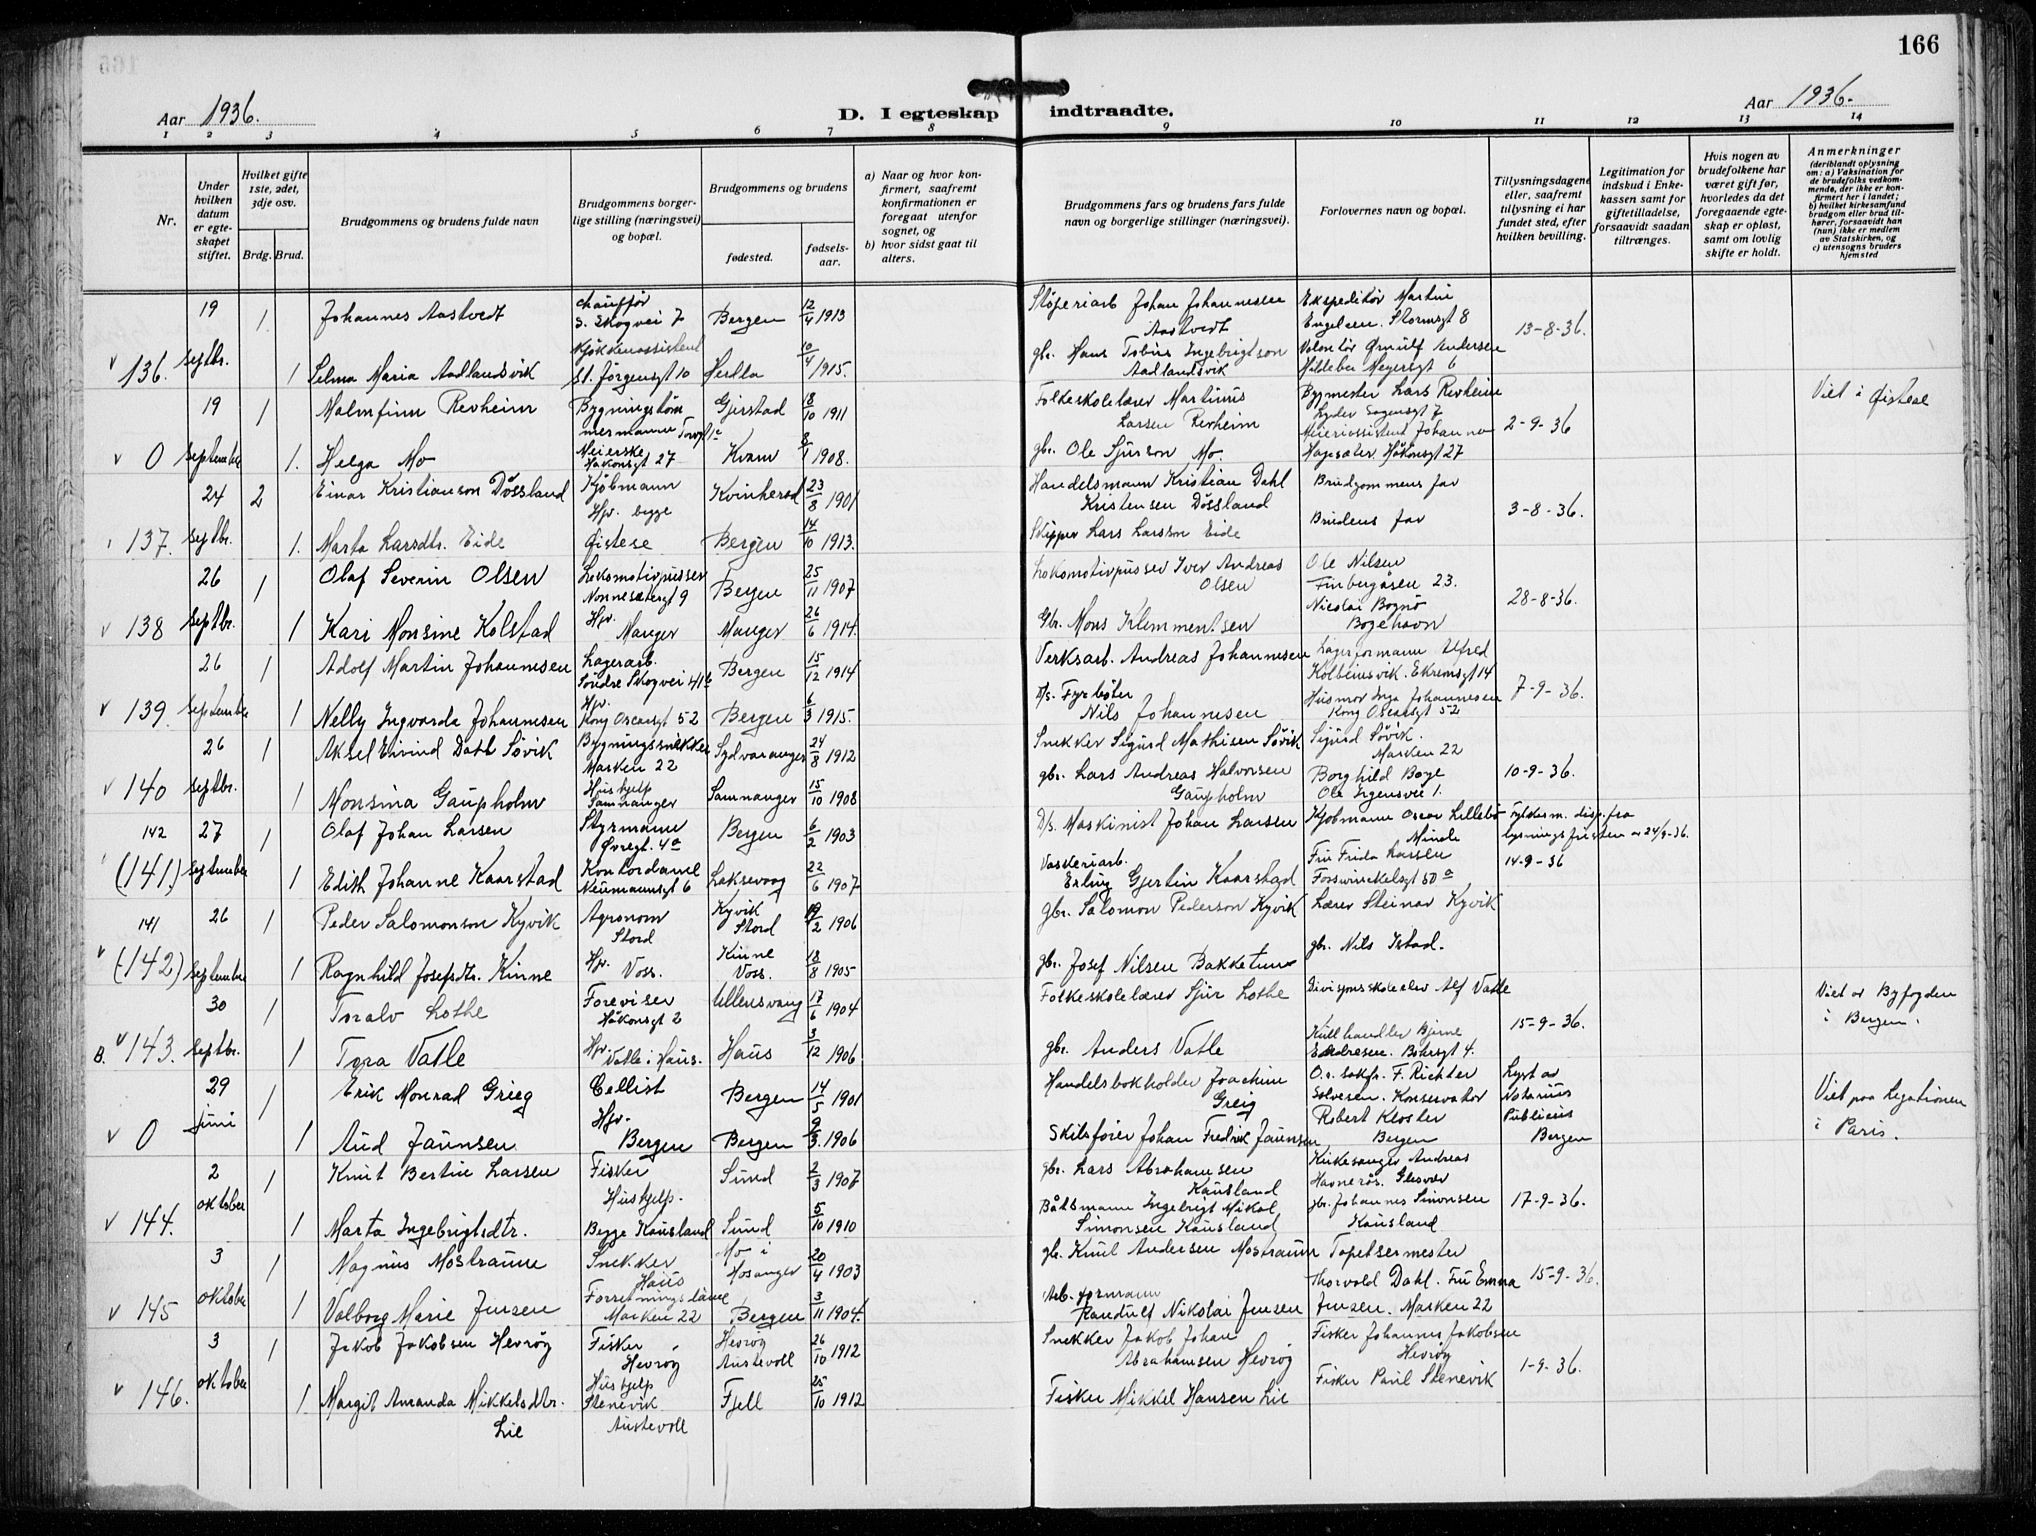 166
Aar 1936.
D. I egteskap indtraadte.
Aar 1936.
1 2 3 4 5 6 7 8 9 10 11 12 13 14
Nr.
Under hvilken datum er egteskapet stiftet.
Hvilket gifte 1ste, 2det, 3dje osv.
Brdg. Brud.
Brudgommens og brudens fulde navn
Brudgommens borgerlige stilling (næringsvei) og bopæl.
Brudgommens og brudens
fødested.
fødselsaar.
a) Naar og hvor konfirmert, saafremt konfirmationen er foregaat utenfor sognet, og
b) hvor sidst gaat til alters.
Brudgommens fars og brudens fars fulde navn og borgerlige stillinger (næringsvei).
Forlovernes navn og bopæl.
Tillysningsdagene eller, saafremt tillysning ei har fundet sted, efter hvilken bevilling.
Legitimation for indskud i Enkekassen samt for giftetilladelse, forsaavidt saadan tiltrænges.
Hvis nogen av brudefolkene har været gift før, hvorledes da det foregaaende egteskap er opløst, samt om lovlig skifte er holdt.
Anmerkninger
(deriblandt oplysning om: a) Vaksination for de brudefolks vedkommende, der ikke er konfirmert her i landet; b) hvilket kirkesamfund brudgom eller brud tilhører, forsaavidt han (hun) ikke er medlem av Statskirken, og c) utensogns bruders hjemsted
19 1 Johannes Aastvedt chauffør S. Skogvei 7 Bergen 12/4 1913 Støperiarb Johan Johannesen Aastvedt Ekspeditør Martin Engelsen. Stormsgt 8 13-8-36.
v 136. Septbr. 1 Selma Maria Aadlandsvik Kjøkkenassistent St. Jørgensgt 10 Herdla 10/4 1915. gbr. Hans Tobias Ingebrigtson Aadlandsvik Volontør Ørnulf Andersen Hildebr Meyersgt 6
19 1 Malmfinn Revheim Bygningstømmermann Gjerstad 18/10 1911 Folkeskolelærer Martinus Larsen Revheim Bygmester Lars Revheim Lyder Sagensgt 7 2-9-36 Viet i Øistese
v 0 September 1. Helga Mo Meierske Håkonsgt 27 Kvam 8/1 1908. gbr. Ole Sjurson Mo. Meieriassistent Johanna Hagesæter. Håkonsgt 27
24 2 Einar Kristianson Døssland Kjøbmann Hjv. begge Kvinherad 23/8 1901 Handelsmann Kristian Dahl Kristensen Døssland Brudgommens far 3-8-36.
137. Septbr. 1. Marta Larsdtr. Eide Øistese Bergen 14/10 1913. Skipper Lars Larsson Eide Brudens far
26 1 Olaf Severin Olsen Lokomotivpusser Nonnesætergt 9 Bergen 25/11 1907 Lokomotivpusser Iver Andreas Olsen Ole Nilsen Finbergåsen 23. 28-8-36.
v 138 Septbr. 1 Kari Monsine Kolstad Hjv. Manger Manger 26/6 1914. Gbr. Mons Klemmentsen Nicolai Bognø Bogehavn
26 1 Adolf Martin Johannesen Lagerarb. Søndre Skogvei 41 b Bergen 15/12 1914 Verksarb. Andreas Johannesen Lagerformann Alfred Kolbeinsvik. Ekrensgt 14 7-9-36.
v 139. September 1 Nelly Ingvarda Johannesen Hjv. Kong Oscarsgt 52 Bergen 6/3 1915. D/s. Fyrbøter Nils Johannesen Husmor Inga Johannesen Kong Oscarsgt 52
26 1 Aksel Eivind Dahl Søvik Bygningssnekker Marken 22 Sydvaranger 24/8 1912 Snekker Sigurd Mathisen Søvik Sigurd Søvik. Marken 22 10-9-36.
v 140 Septbr. 1 Monsina Gaupholm Hushjelp Samnanger Samnanger 15/10 1908 gbr. Lars Andreas Halvorsen Gaupholm Borghild Boge Ole Irgensvei 1.
142 27 1 Olaf Johan Larsen Styrmann Øvregt. 4a Bergen 6/2 1903 D/s. Maskinist Johan Larsen Kjøbmann Oscar Lillebø Minde Fylkesm. disp. fra lysningsfristen av 24/9-36.
(141.) September 1 Edith Johanne Kaarstad Kontordame Neumannsgt 6 Laksevaag 22/6 1907 Vaskeriarb. Erling Gjertin Kaarstad Fru Frida Larsen Fosswinckelsgt 50 a 14-9-36
141 26 1 Peder Salomonson Kyvik Agronom Stord Kyvik Stord 19/2 1906 gbr. Salomon Pederson Kyvik Lærer Steinar Kyvik
v (142) September 1 Ragnhild Josefsdtr. Kinne Hjv. Voss. Kinne Voss. 18/8 1905 gbr. Josef Nilsen Bakketun gbr. Nils Istad.
30 1 Toralv Lothe Foreviser Håkonsgt 2 Ullensvang 17/6 1904 Folkeskolelærer Sjur Lothe Divisjonsskoleelev Alf Vatle 15-9-36. Viet av Byfogden i Bergen.
B. v 143. Septbr. 1 Tora Vatle Hjv. Vatle i Haus. Haus 3/12 1906 gbr. Anders Vatle Kullhandler Bjarne Endresen. Bøhrsgt 4.
29 1 Erik Monrad Grieg Cellist Bergen 14/5 1901 Handelsbokholder Joachim Greig O.r. sakfr. F. Richter Solvesen. Konservator Lyst av Notarius Viet paa Legationen i Paris.
v 0 juni 1 Aud Jaunsen Hjv. Bergen Bergen 9/3 1906 Skibsfører Johan Fredrik Jaunsen Robert Kloster Bergen Publicus Bergen
2 1 Knut Bertin Larsen Fisker Sund 2/3 1907 gbr. Lars Abrahamsen Kausland Kirkesanger Andreas Havnerås. Glesvær 17-9-36.
v 144. oktober 1 Marta Ingebrigtsdtr. Hushjelp. Begge Kausland Sund 5/10 1910 Båtsmann Ingebrigt Mikal Simonsen Kausland gbr. Johannes Simonsen Kausland
3 1 Magnus Mostraum Snekker Haus Mo i Hosanger 20/4 1903 gbr. Knut Andersen Mostraum Tapetsermester Thorvald Dahl. Fru Emma 15-9-36.
v 145 oktober 1 Valborg Marie Jensen Forretningsdame Marken 22 Bergen 3/11 1904. Arb.formann Randulf Nikolai Jensen Jensen. Marken 22
3 1 Jakob Jakobsen Hevrøy Fisker Hevrøy Hevrøy Austevoll 26/10 1912 Snekker Jakob Johan Abrahamsen Hevrøy Fisker Johannes Jakobsen Hevrøy 1-9-36.
v 146. oktober 1 Margit Amanda Mikkelsdtr. Lie Hushjelp Stenevik Austevoll Fjell 25/10 1912 Fisker Mikkel Hansen Lie Fisker Paul Stenevik